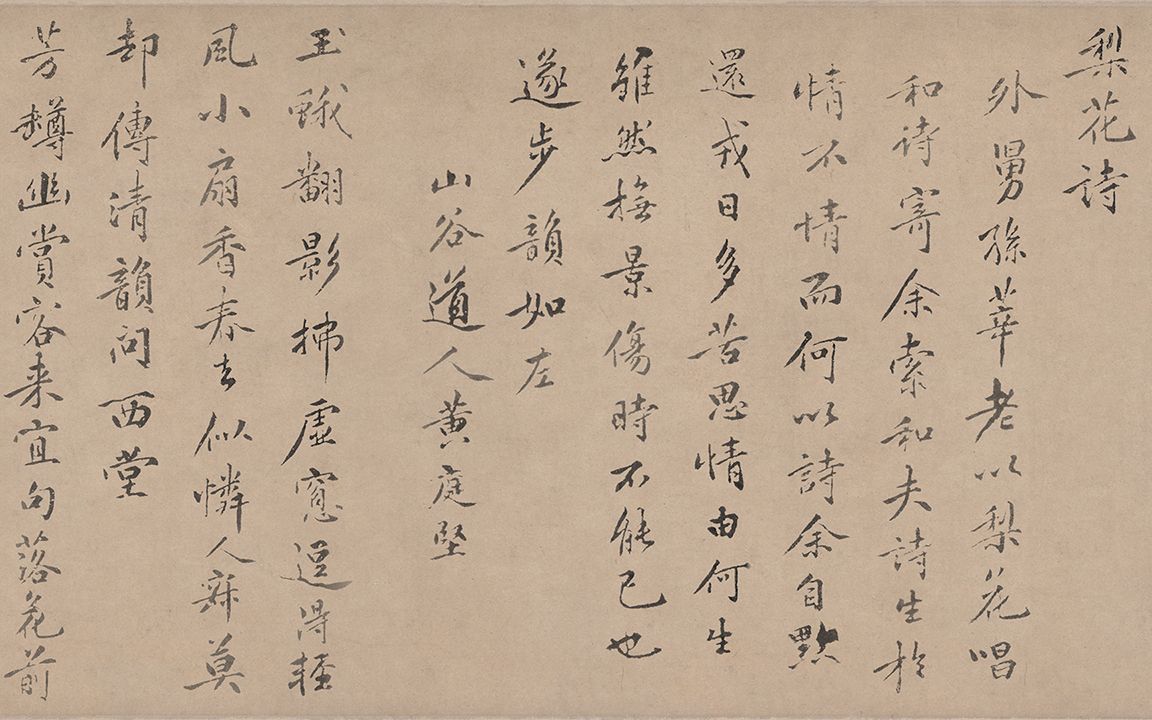 梨花詩
外舅孫莘老以梨花唱
和诗寄余索和夫詩生於
情不情而何以詩余自黜
還戎日多苦思情由何生
雖然撫景傷時不能已也
遂步韻如左
山谷道人黄庭堅
玉蛾翻影拂虚窓逗得輕
風小扇香春去似憐人寂莫
却傳清韻问西堂
芳樽幽賞容来宜句落花前